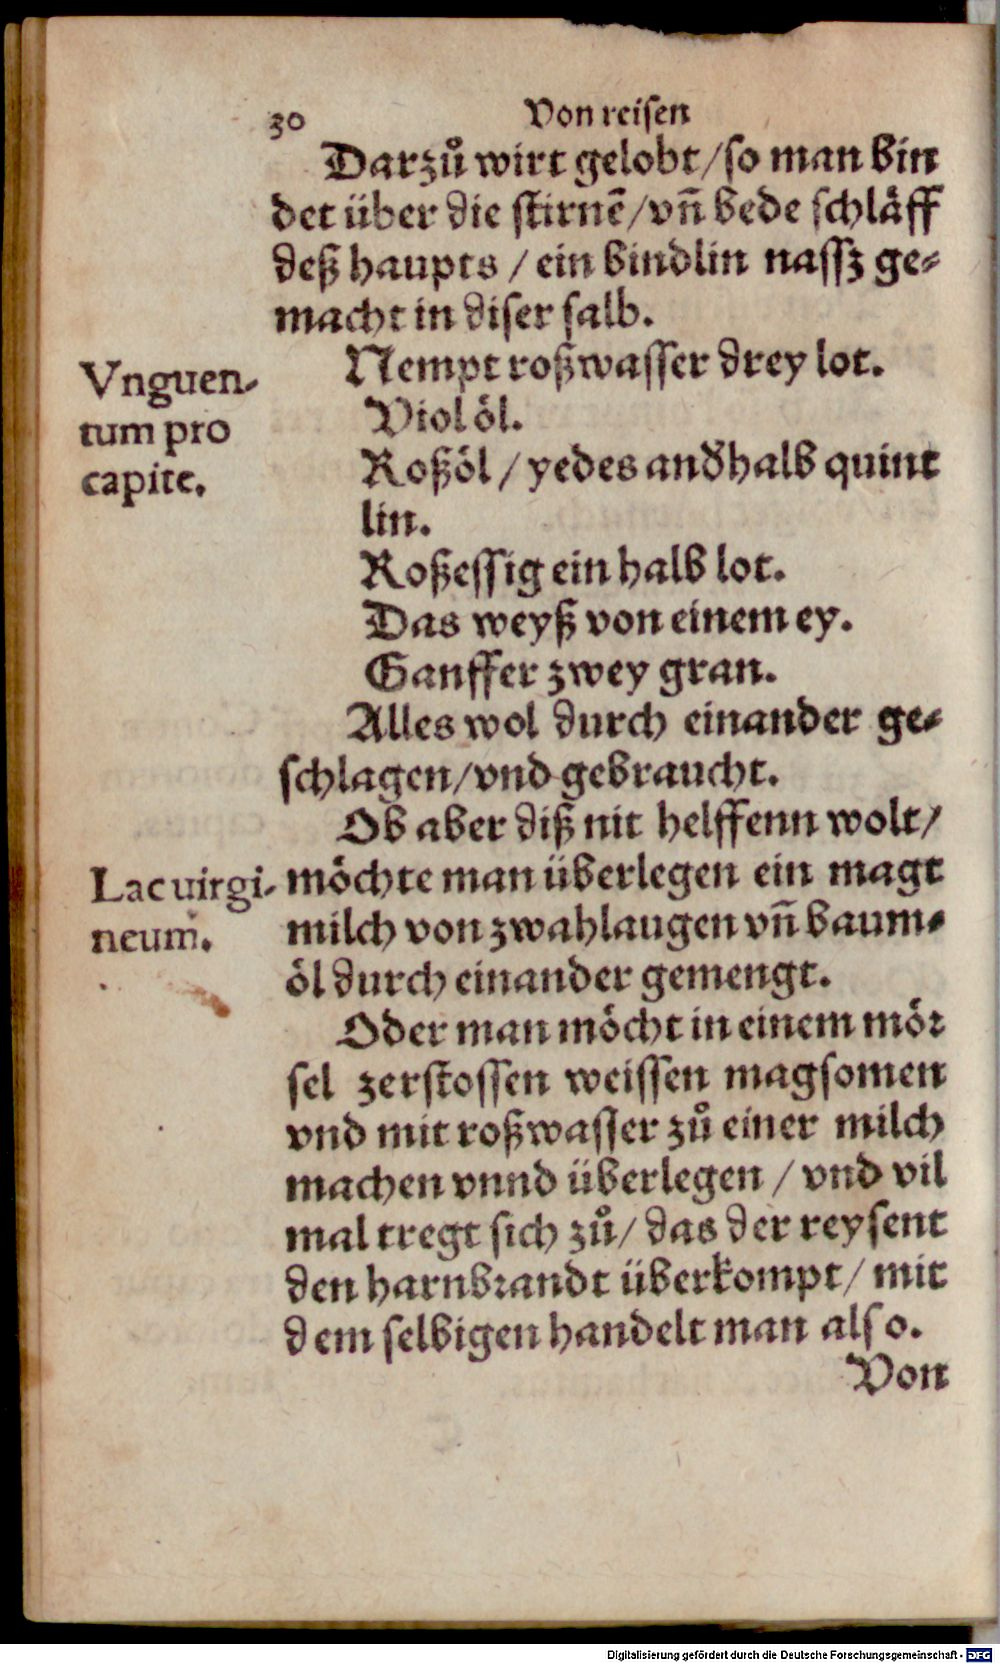 30
Von reisen
Darzů wirt gelobt/so man bin
det über die stirnē/vn̄ bede schläff
deß haupts / ein bindlin nassz ge⸗
macht in diser salb.
Vnguen-
tum pro
capite.
Nempt roßwasser drey lot.
Viol öl.
Roßöl / yedes andhalb quint
lin.
Roßessig ein halb lot.
Das weyß von einem ey.
Ganffer zwey gran.
Alles wol durch einander ge⸗
schlagen/vnd gebraucht.
Ob aber diß nit helffenn wolt/
Lac uirgi-
neum.
möchte man überlegen ein magt
milch von zwahlaugen vn̄ baum⸗
öl durch einander gemengt.
Oder man möcht in einem mör
sel zerstossen weissen magsomen
vnd mit roßwasser zů einer milch
machen vnnd überlegen / vnd vil
mal tregt sich zů/ das der reysent
den harnbrandt überkompt/ mit
dem selbigen handelt man also.
Von
Digitalisierung gefördert durch die Deutsche Forschungsgemeinschaft - DFG